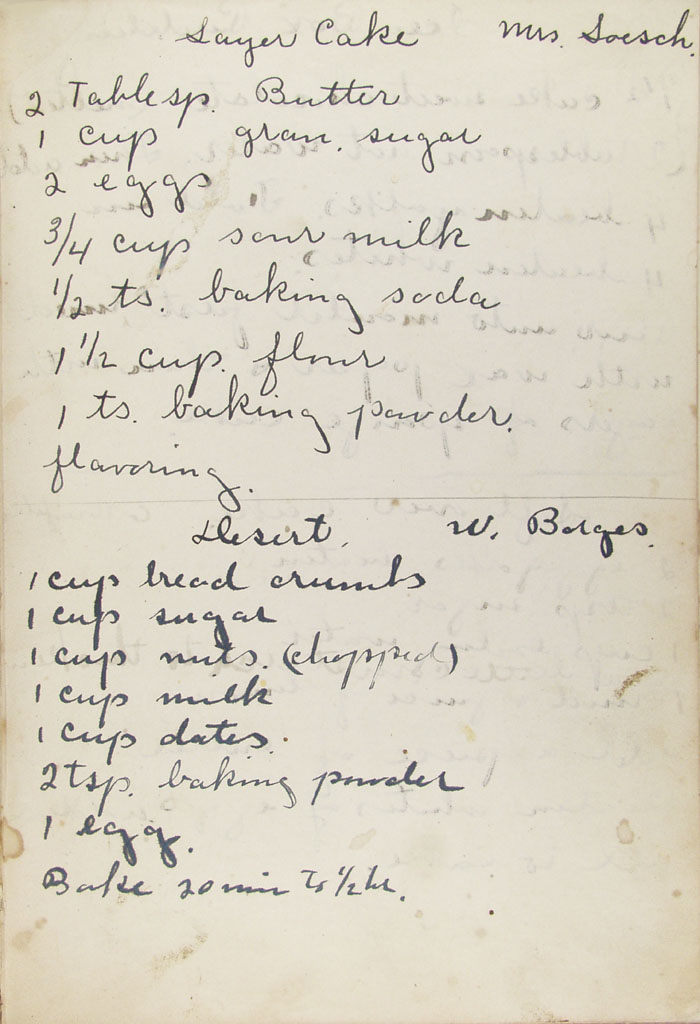 Layer Cake Mrs. Loesch.
2 Tablesp. Butter
1 cup gran. sugar
2 eggs
3/4 cup sour milk
1/2 ts. baking soda
1 1/2 cup. flour
1 ts. baking powder.
flavoring.
Desert. W. Borges.
1 cup bread crumbs
1 cup sugar
1 cup nuts. (chopped)
1 cup milk
1 cup dates.
2 tsp. baking powder
1 egg.
Bake 20 min to 1/2 hr.